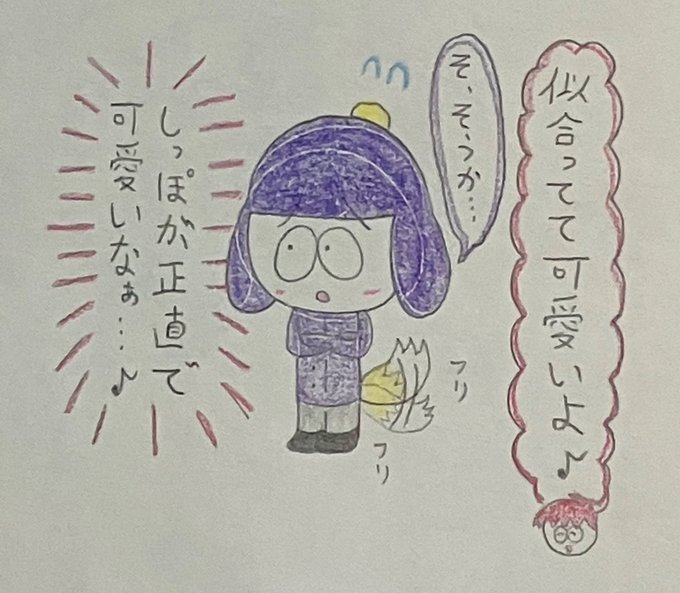 似合ってて可愛いよ♪
そ、そうか…
しっぽが正直で
可愛いなぁ…♪
フリ
フリ